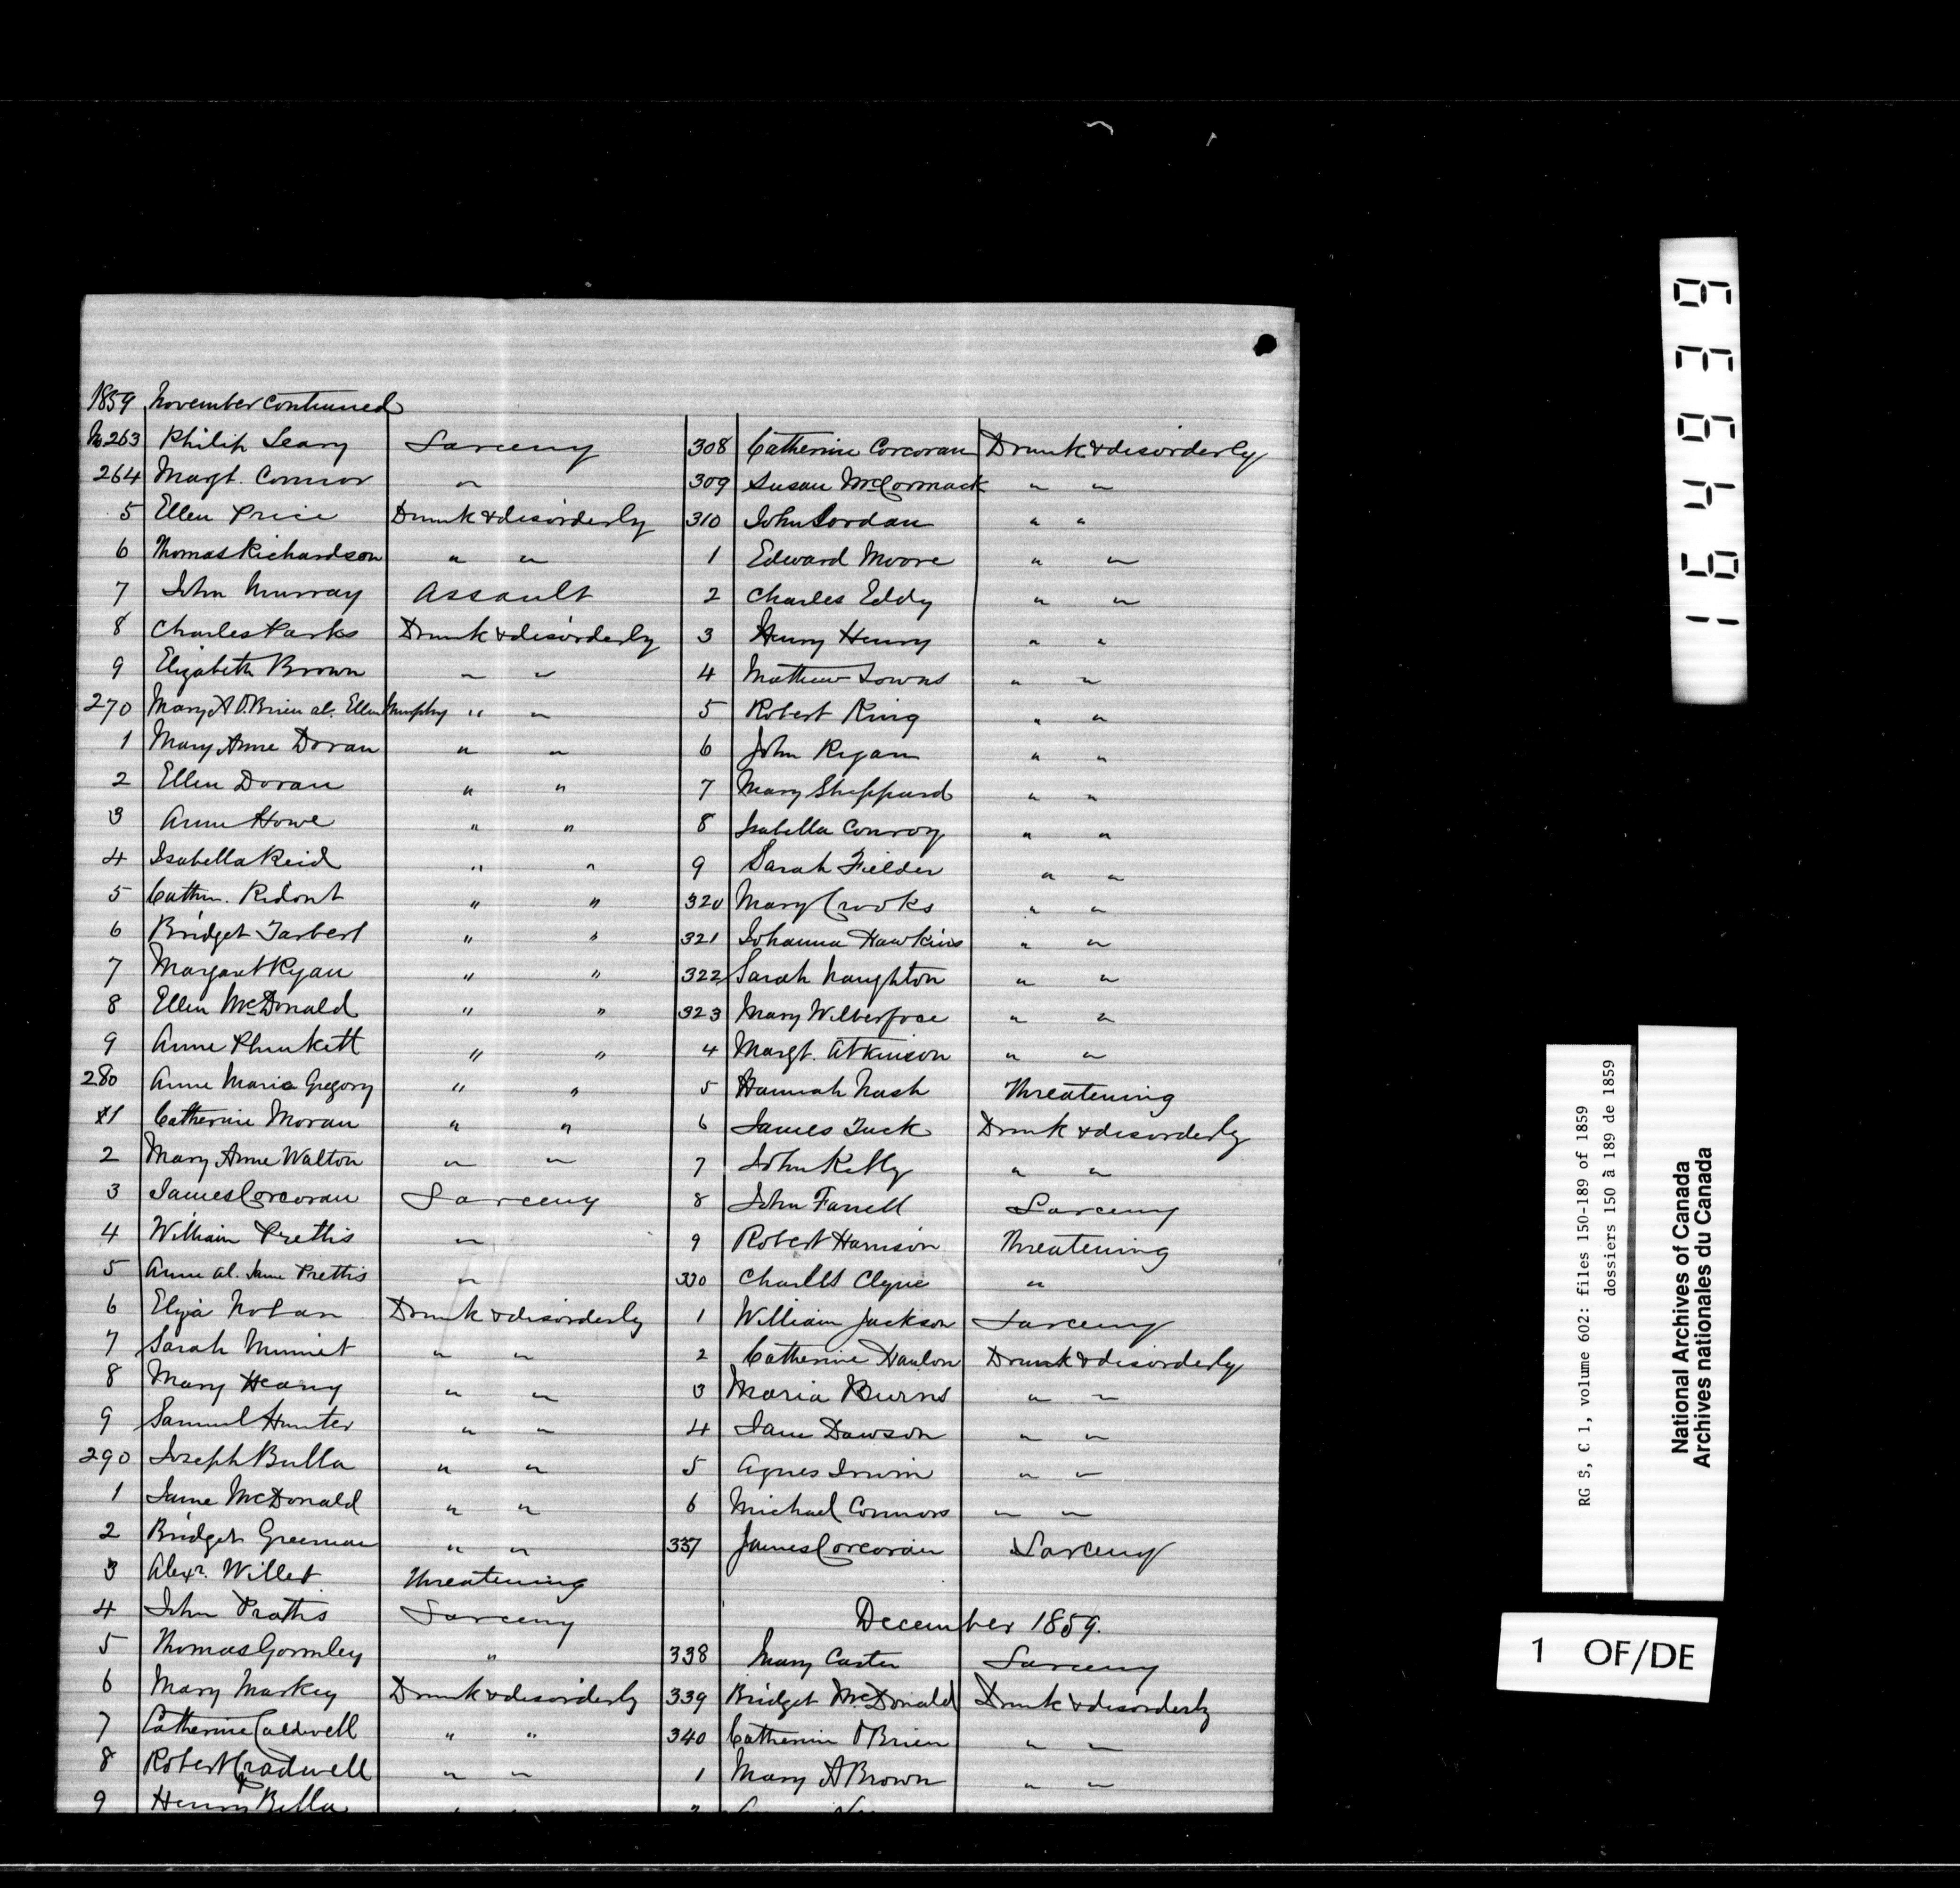 1859 November Continued
No 263 Philip Leary Larceny
264 Margt. Connor "
5 Ellen Price Drunk & disorderly
6 Thomas Richardson " "
7 John Murray Assault
8 Charles Parks Drunk & disorderly
9 Elizabeth Brown " "
270 Mary A O'Brien al. Ellen Murphy " "
1 Mary Anne Doran " "
2 Ellen Doran " "
3 Anne Howe " "
4 Isabella Reid " "
5 Cathn. Ridout " "
6 Bridget Tarbert " "
7 Margaret Ryan " "
8 Ellen McDonald " "
9 Anne Plunkett " "
280 Anne Maria Gregory " "
1 Catherine Moran " "
2 Mary Anne Walton " "
3 James Corcoran Larceny
4 William Prettis "
5 Anne al. Jane Prettis "
6 Eliza Nolan Drunk & disorderly
7 Sarah " "
8 Mary Heany " "
9 Samuel Hunter " "
290 Joseph Bulla " "
1 Jane McDonald " "
2 Bridget Greenan " "
3 Alexr. Willet Threatening
4 John Larceny
5 Thomas Gormley "
6 Mary Markey Drunk & disorderly
7 Catherine Caldwell " "
8 Robert Cradwell " "
9 Henry Bella
308 Catherine Corcoran Drunk & disorderly
309 Susan McCormack " "
310 John Jordan " "
1 Edward Moore " "
2 Charles Eddy " "
3 Henry Henry " "
4 Mathew Towns " "
5 Robert King " "
6 John Ryan " "
7 Mary Sheppard " "
8 Isabella Conroy " "
9 Sarah Fielder " "
320 Mary Crooks " "
321 Johanna Hawkins " "
322 Sarah Naughton " "
323 Mary Wilberforce " "
4 Margt. Atkinson " "
5 Hannah Nash Threatening
6 James Tuck Drunk & disorderly
7 John Kelly " "
8 John Farrell Larceny
9 Robert Harrison Threatening
330 Charles Clyne "
1 William Jackson Larceny
2 Catherine Hanlon Drunk & disorderly
3 Maria Burns " "
4 Jane Dawson " "
5 Agnes Irwin " "
6 Michael Connors " "
337 James Corcoran Larceny
December 1859.
338 Mary Carter Larceny
339 Bridget McDonald Drunk & disorderly
340 Catherine O'Brien " "
1 Mary A Brown " "
164939
RG 5, C 1, volume 602: files 150-189 of 1859
dossiers 150 à 189 de 1859
National Archives of Canada
Archives nationales du Canada
1 OF/DE